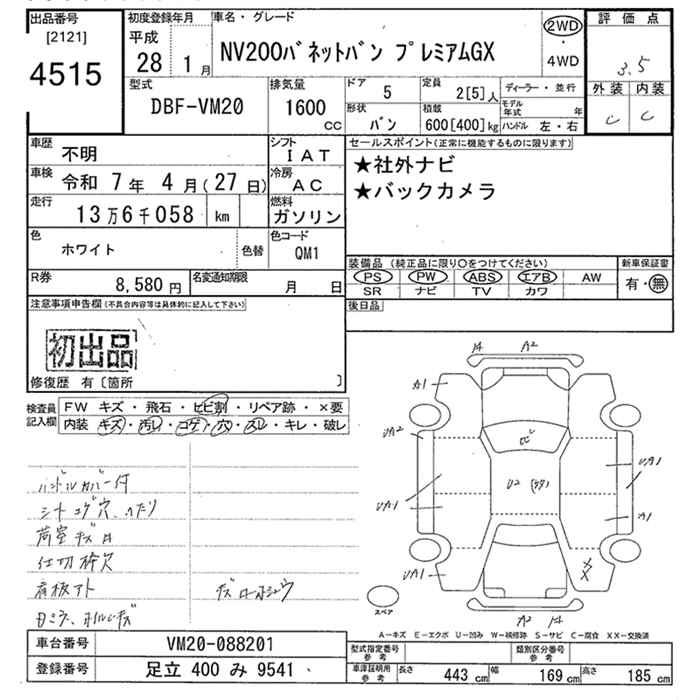 出品番号
[2121]
4515
初度登録年月
平成
28 1月
車名・グレード
NV200バネットバン プレミアムGX
2WD
・
4WD
評価点
3.5
外装 内装
C C
型式
DBF-VM20
排気量
1600
CC
ドア
5
定員
2[5]人
ディーラー・並行
モデル年式 年
形状
バン
積載
600[400]kg
ハンドル 左・右
車歴
不明
シフト
IAT
車検
令和 7年 4月(27日)
冷房
AC
走行
13万6千058 km
燃料
ガソリン
色
ホワイト
色替
色コード
QM1
セールスポイント(正常に機能するものに限ります)
★社外ナビ
★バックカメラ
装備品 (純正品に限り○をつけてください)
新車保証書
PS PW ABS エアB AW
SR ナビ TV カワ
有・無
R券
8,580円
名変通知期限
月 日
後日品
注意事項申告欄(不具合内容等は具体的に記入して下さい)
初出品
修復歴 有〔箇所 〕
検査員記入欄
FW キズ・飛石・ヒビ割・リペア跡・×要
内装 キズ・汚レ・コゲ・穴・スレ・キレ・破レ
ハンドルカバー付
シートコゲ穴、ヘタリ
荷室キズ凹
仕切枠欠
看板アト
A2
A1
UA2
UA1
UA1
U2
UA1
A1
XX
A2
スペア
A-キズ E-エクボ U-凹み W-補修跡 S-サビ C-腐食 XX-交換済
車台番号
VM20-088201
登録番号
足立 400 み 9541
型式指定番号
参考
類別区分番号
参考
車庫証明用
参考
長さ 443 cm 幅 169 cm 高さ 185 cm